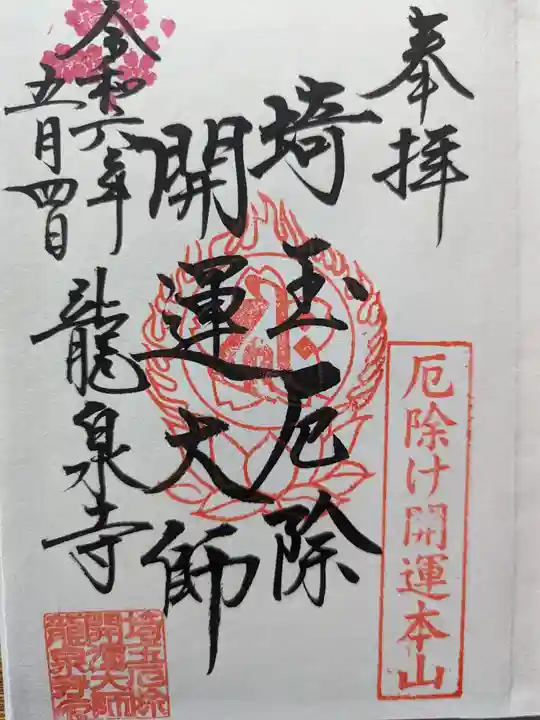 奉拝
厄除け開運本山
埼玉厄除
開運大師
令和六年
五月四日
龍泉寺
埼玉厄除
開運大師
龍泉寺